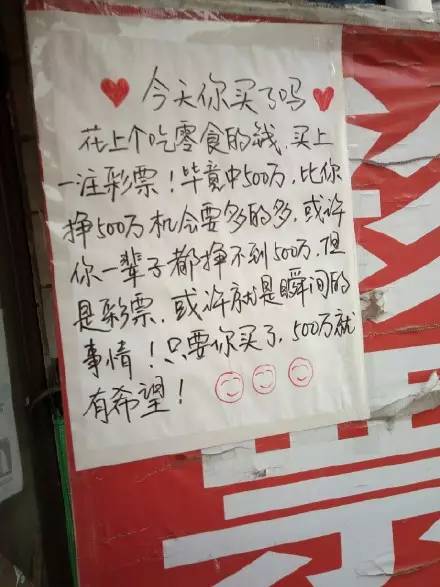 今天你买了吗
花上个吃零食的钱.买上
一注彩票！毕竟中500万.比你
挣500万机会要多的多.或许
你一辈子都挣不到500万.但
是彩票.或许就是瞬间的
事情！只要你买了.500万就
有希望！